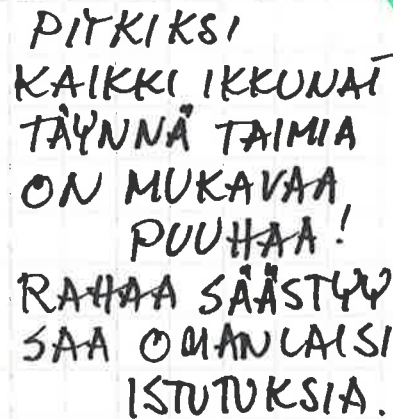 PITKIKSI
KAIKKI IKKUNAT
TÄYNNÄ TAIMIA
ON MUKAVAA
PUUHAA!
RAHAA SÄÄSTYY
SAA OMANLAISI
ISTUTUKSIA.